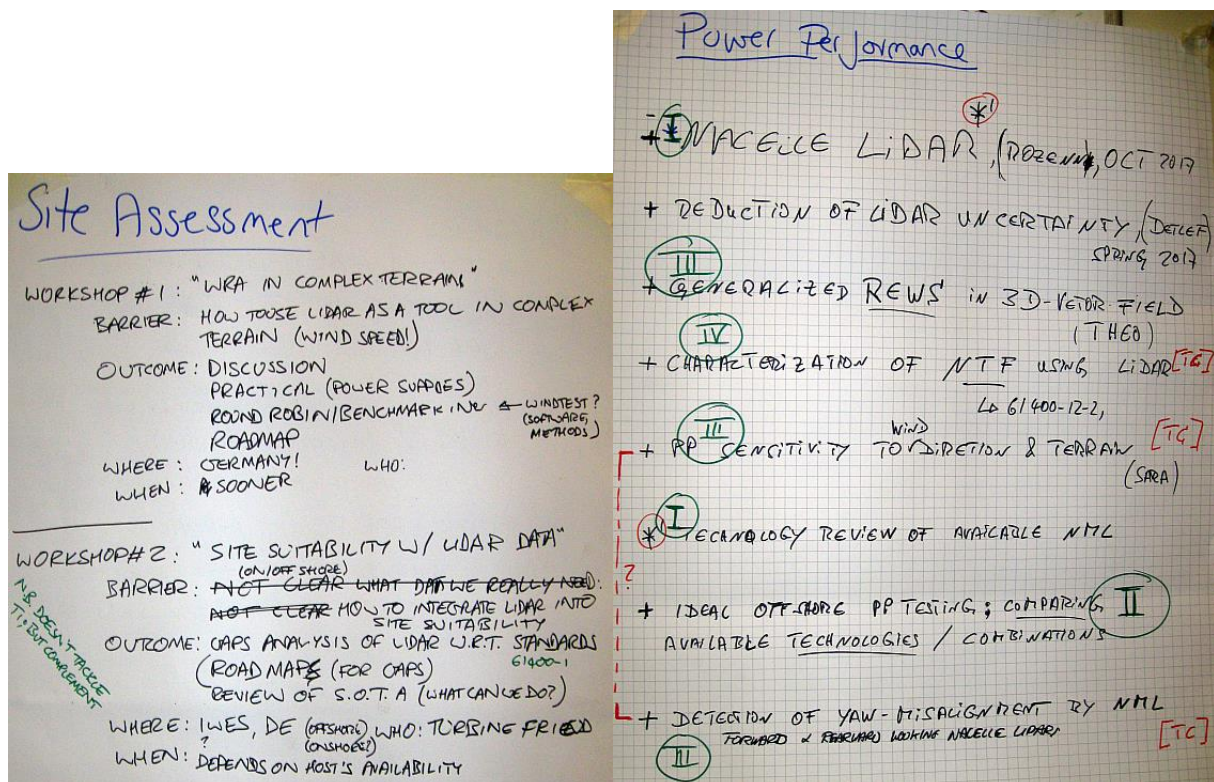 Site Assessment
WORKSHOP #1: "WRA IN COMPLEX TERRAIN"
BARRIER: HOW TO USE LIDAR AS A TOOL IN COMPLEX
TERRAIN (WIND SPEED!)
OUTCOME: DISCUSSION
PRACTICAL (POWER SUPPLIES)
ROUND ROBIN/BENCHMARKING ← WINDTEST?
(SOFTWARE,
METHODS)
ROADMAP
WHERE: GERMANY! WHO:
WHEN: SOONER
WORKSHOP #2: "SITE SUITABILITY W/ LIDAR DATA"
(ON/OFFSHORE)
BARRIER: NOT CLEAR WHAT DATA WE REALLY NEED:
NOT CLEAR HOW TO INTEGRATE LIDAR INTO
SITE SUITABILITY
N.B. DOESN'T TACKLE
TI, BUT COMPLEMENT
OUTCOME: GAPS ANALYSIS OF LIDAR W.R.T. STANDARDS
61400-1
(ROADMAP (FOR GAPS)
REVIEW OF S.O.T.A (WHAT CAN WE DO?)
WHERE: IWES, DE (OFFSHORE), WHO: TURBINE
? (ONSHORE?)
WHEN: DEPENDS ON HOST'S AVAILABILITY
Power Performance
+ I NACELLE LiDAR *', (ROZENN), OCT 2017
+ REDUCTION OF LIDAR UNCERTAINTY, (DETLEF)
SPRING 2017
III
+ GENERALIZED REWS in 3D-VETOR-FIELD
(THEO)
IV
+ CHARACTERIZATION OF NTF USING LiDAR [TC]
↳ 61400-12-2,
III
+ PP SENCITIVITY TO WIND DIRETION & TERRAIN [TC]
(SARA)
I
*' TECHNOLOGY REVIEW OF AVAILABLE NML
?
+ IDEAL OFF-SHORE PP TESTING; COMPARING II
AVAILABLE TECHNOLOGIES / COMBINATIONS
+ DETECTION OF YAW-MISALIGNMENT BY NML
FORWARD & REARWARD LOOKING NACELLE LIDARS [TC]
III